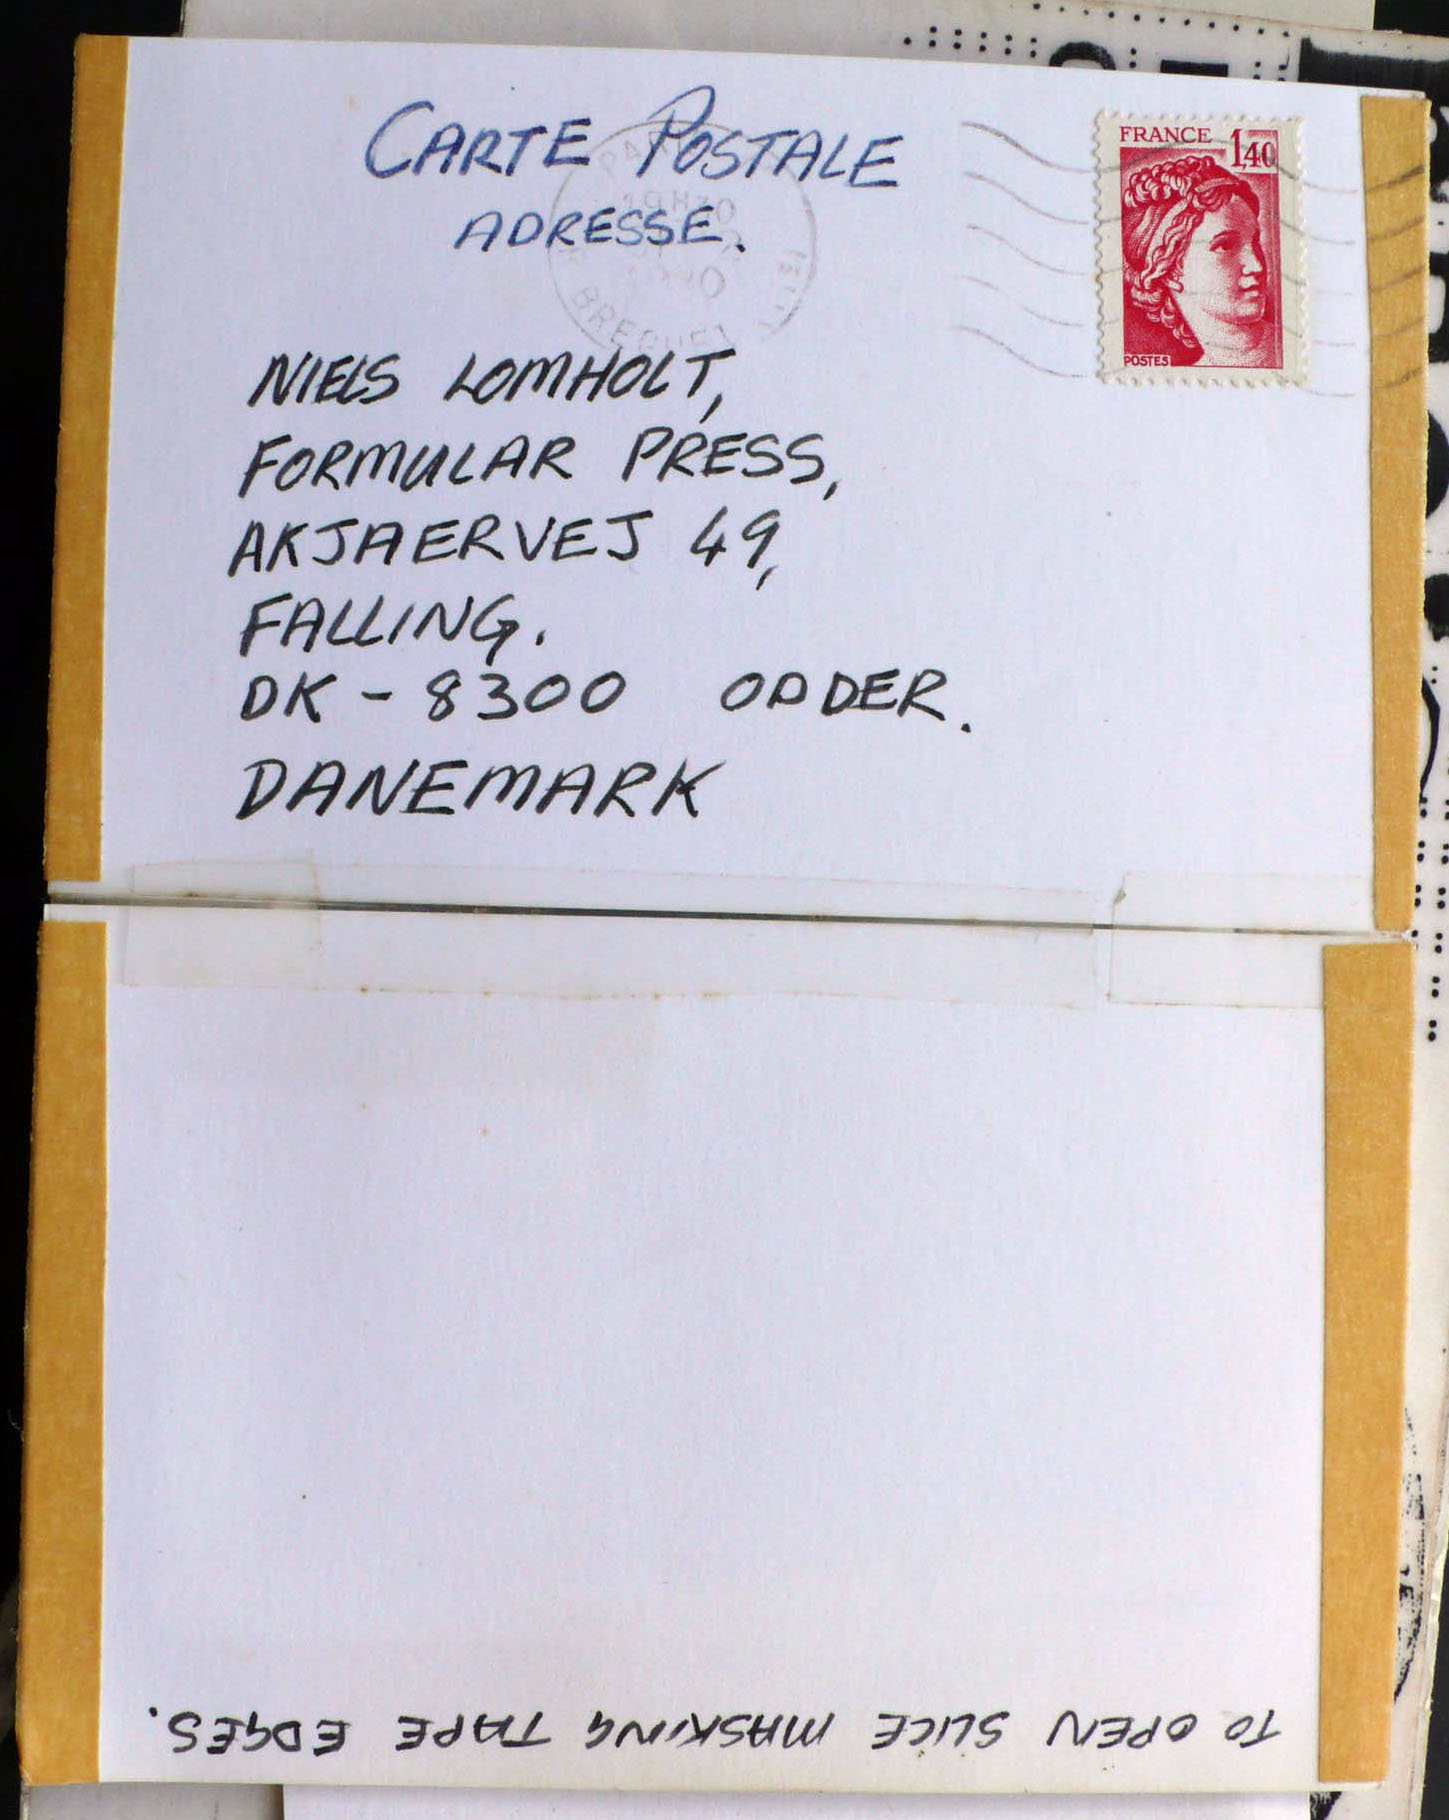 CARTE POSTALE
ADRESSE.
FRANCE 1,40
POSTES
NIELS LOMHOLT,
FORMULAR PRESS,
AKJAERVEJ 49,
FALLING.
DK - 8300 ODDER.
DANEMARK
TO OPEN SLICE MASKING TAPE EDGES.